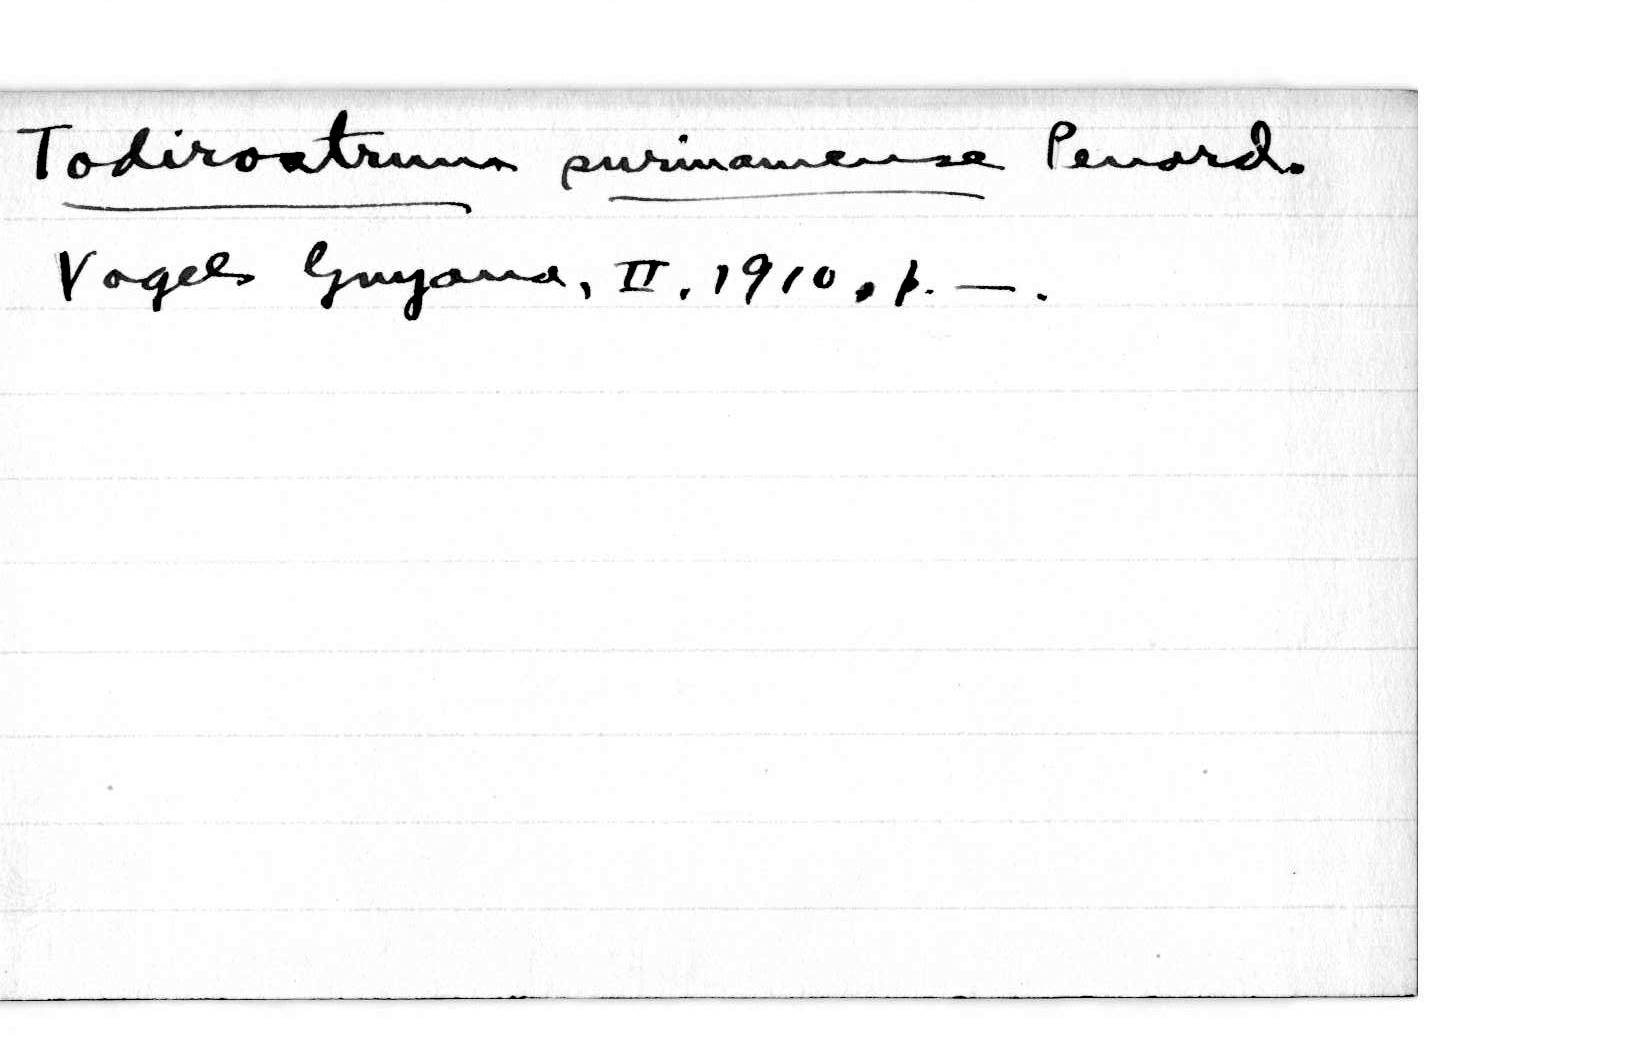 Todirostrum surinamense Penard.
Vogels Guyana, II, 1910, p. —.